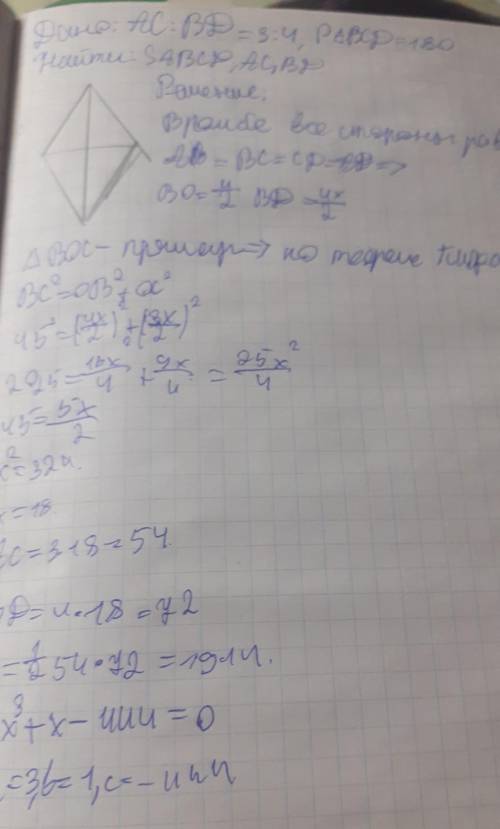 Дано: AC:BD=3:4, PABCD=180
Найти: SABCD, AC, BD
Решение.
В ромбе все стороны рав
AB=BC=CD= =>
BO=\frac{4}{2} BD=\frac{4x}{2}
△BOC-прямоуг=> по теореме Пифа
BC²=OB²+OC²
45²=(\frac{4x}{2})²+(\frac{3x}{2})²
2025=\frac{16x}{4}+\frac{9x}{4}=\frac{25x²}{4}
45=\frac{5x}{2}
x²=324.
x=18
AC=3·18=54
BD=4·18=72
=\frac{1}{2}54·72=1914.
x³+x-444=0
=3, b=1, c=-444